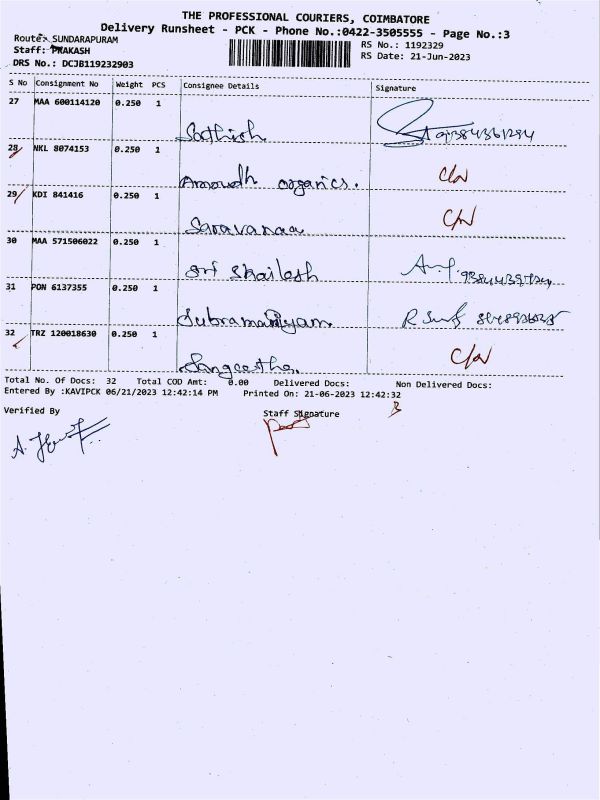 THE PROFESSIONAL COURIERS, COIMBATORE
Delivery Runsheet - PCK - Phone No.:0422-3505555 - Page No.:3
Route: SUNDARAPURAM
Staff: PRAKASH
DRS No.: DCJB119232903
RS No.: 1192329
RS Date: 21-Jun-2023
S No Consignment No Weight PCS Consignee Details Signature
27 MAA 600114120 0.250 1
Sathish
28 NKL 8074153 0.250 1
organics. C/N
29 KDI 841416 0.250 1
Saravanaa C/N
30 MAA 571506022 0.250 1
Sri Shailesh
31 PON 6137355 0.250 1
Subramaniyam
32 TRZ 120018630 0.250 1
Sangeetha. C/N
Total No. Of Docs: 32 Total COD Amt: 0.00 Delivered Docs: Non Delivered Docs:
Entered By :KAVIPCK 06/21/2023 12:42:14 PM Printed On: 21-06-2023 12:42:32
Verified By Staff Signature